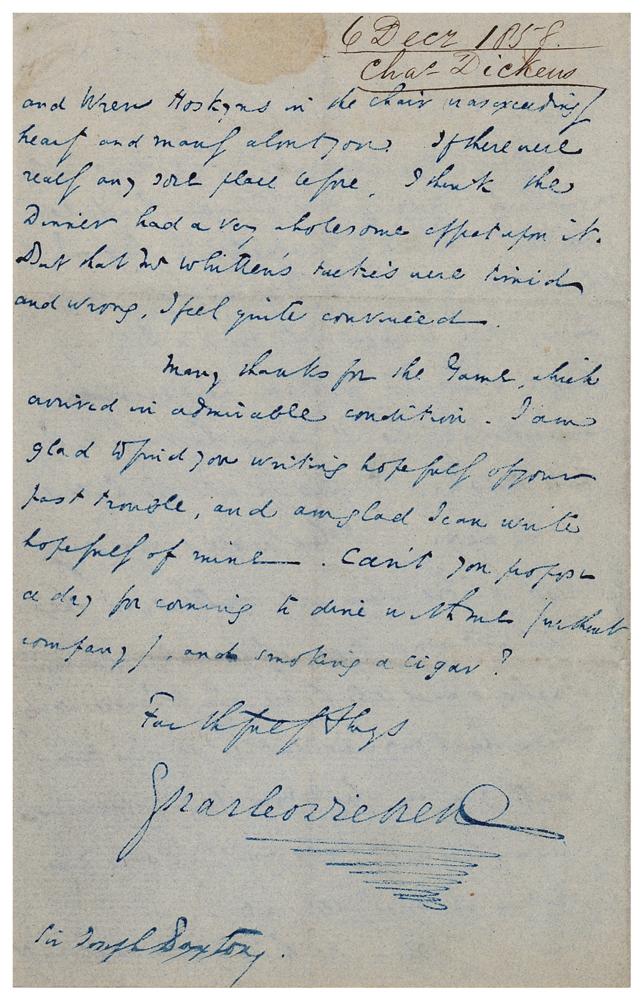 6 Decr 1858.
Chas Dickens
and Wren Hoskyns in the chair was exceedingly
hearty and manly about you. If there were
really any sore place before, I think the
Dinner had a very wholesome effect upon it.
But that Mr Whitten's tactics were timid
and wrong, I feel quite convinced.
Many thanks for the Game, which
arrived in admirable condition. I am
glad to find you writing hopefully of your
past trouble, and am glad I can write
hopefully of mine. Can't you propose
a day for coming to dine with me (without
company), and smoking a cigar?
Faithfully Always
Charles Dickens
Sir Joseph Paxton.